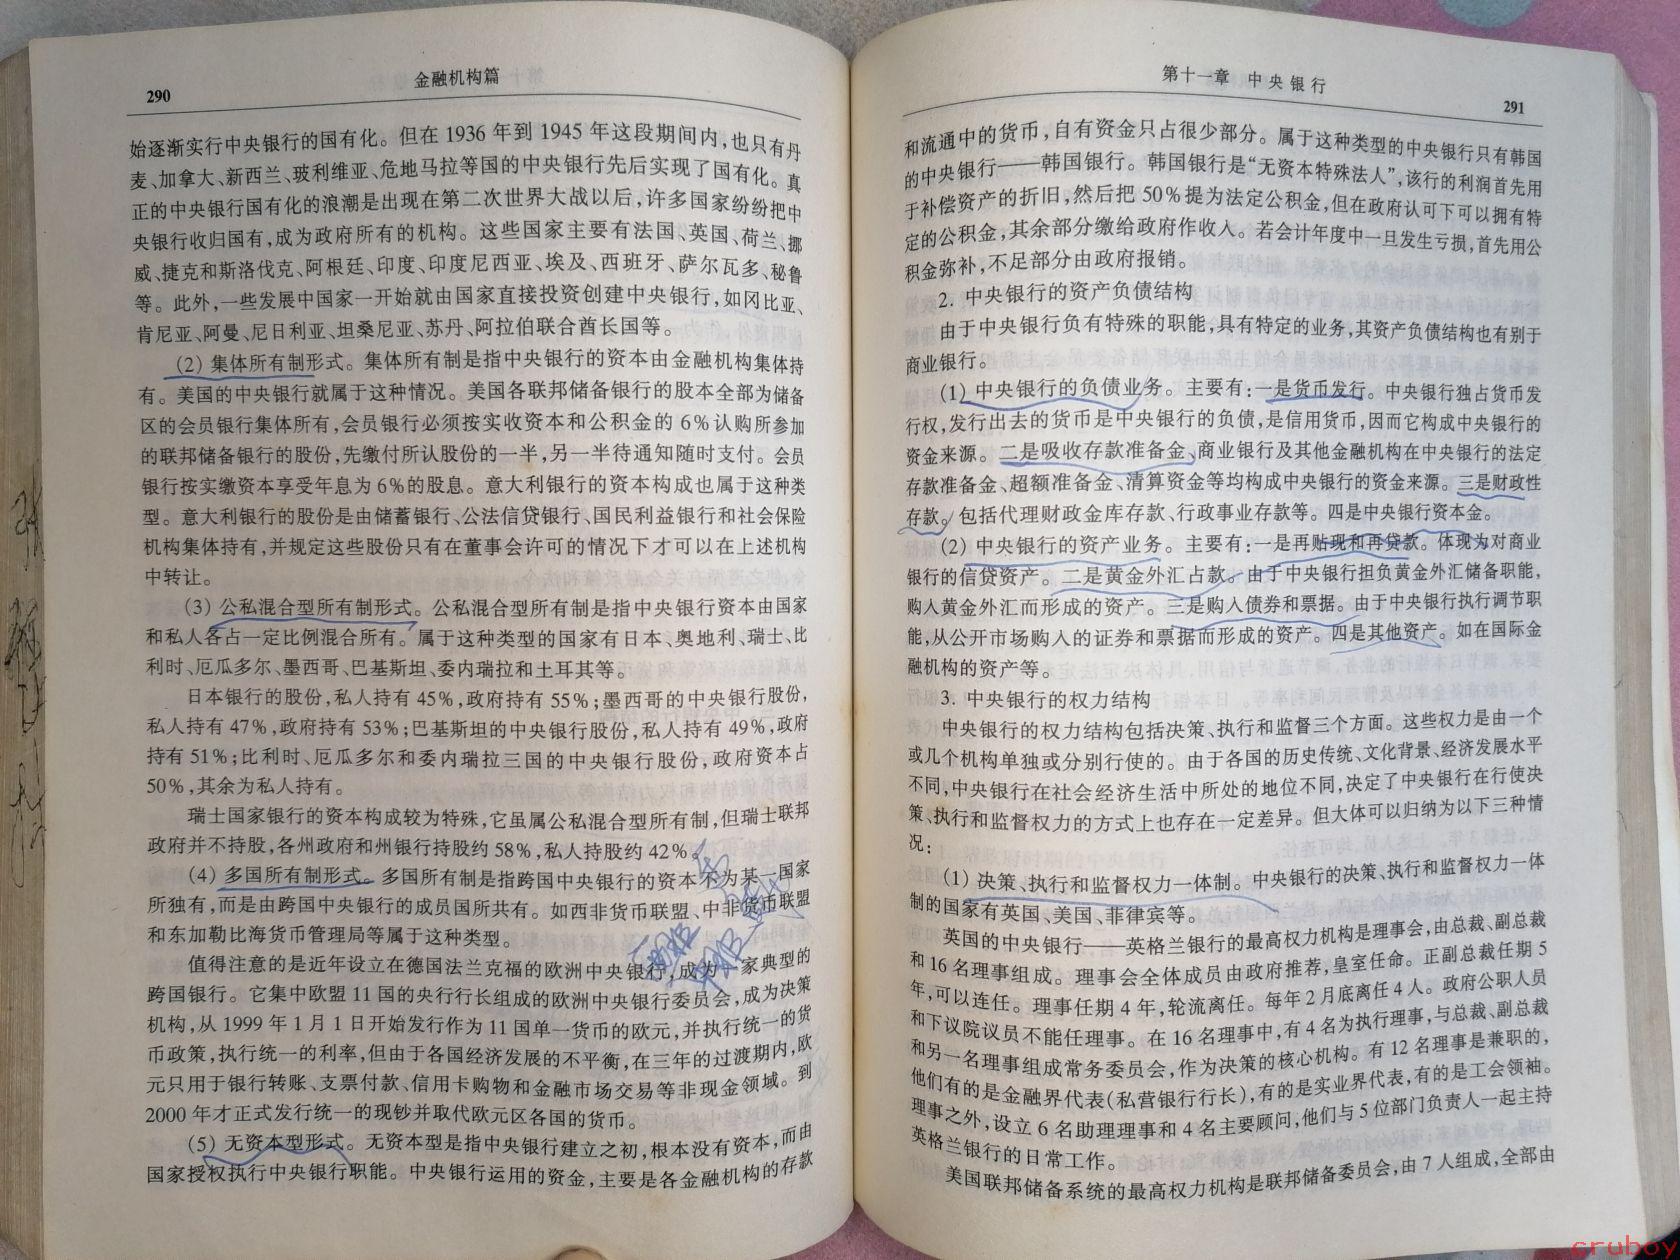 290
金融机构篇
始逐渐实行中央银行的国有化。但在1936年到1945年这段期间内,也只有丹
麦、加拿大、新西兰、玻利维亚、危地马拉等国的中央银行先后实现了国有化。真
正的中央银行国有化的浪潮是出现在第二次世界大战以后,许多国家纷纷把中
央银行收归国有,成为政府所有的机构。这些国家主要有法国、英国、荷兰、挪
威、捷克和斯洛伐克、阿根廷、印度、印度尼西亚、埃及、西班牙、萨尔瓦多、秘鲁
等。此外,一些发展中国家一开始就由国家直接投资创建中央银行,如冈比亚、
肯尼亚、阿曼、尼日利亚、坦桑尼亚、苏丹、阿拉伯联合酋长国等。
(2) 集体所有制形式。集体所有制是指中央银行的资本由金融机构集体持
有。美国的中央银行就属于这种情况。美国各联邦储备银行的股本全部为储备
区的会员银行集体所有,会员银行必须按实收资本和公积金的6%认购所参加
的联邦储备银行的股份,先缴付所认股份的一半,另一半待通知随时支付。会员
银行按实缴资本享受年息为6%的股息。意大利银行的资本构成也属于这种类
型。意大利银行的股份是由储蓄银行、公法信贷银行、国民利益银行和社会保险
机构集体持有,并规定这些股份只有在董事会许可的情况下才可以在上述机构
中转让。
(3) 公私混合型所有制形式。公私混合型所有制是指中央银行资本由国家
和私人各占一定比例混合所有。属于这种类型的国家有日本、奥地利、瑞士、比
利时、厄瓜多尔、墨西哥、巴基斯坦、委内瑞拉和土耳其等。
日本银行的股份,私人持有45%,政府持有55%;墨西哥的中央银行股份,
私人持有47%,政府持有53%;巴基斯坦的中央银行股份,私人持有49%,政府
持有51%;比利时、厄瓜多尔和委内瑞拉三国的中央银行股份,政府资本占
50%,其余为私人持有。
瑞士国家银行的资本构成较为特殊,它虽属公私混合型所有制,但瑞士联邦
政府并不持股,各州政府和州银行持股约58%,私人持股约42%。
(4) 多国所有制形式。多国所有制是指跨国中央银行的资本不为某一国家
所独有,而是由跨国中央银行的成员国所共有。如西非货币联盟、中非货币联盟
和东加勒比海货币管理局等属于这种类型。
值得注意的是近年设立在德国法兰克福的欧洲中央银行,成为一家典型的
跨国银行。它集中欧盟11国的央行行长组成的欧洲中央银行委员会,成为决策
机构,从1999年1月1日开始发行作为11国单一货币的欧元,并执行统一的货
币政策,执行统一的利率,但由于各国经济发展的不平衡,在三年的过渡期内,欧
元只用于银行转账、支票付款、信用卡购物和金融市场交易等非现金领域。到
2000年才正式发行统一的现钞并取代欧元区各国的货币。
(5) 无资本型形式。无资本型是指中央银行建立之初,根本没有资本,而由
国家授权执行中央银行职能。中央银行运用的资金,主要是各金融机构的存款
第十一章 中央银行
291
和流通中的货币,自有资金只占很少部分。属于这种类型的中央银行只有韩国
的中央银行——韩国银行。韩国银行是“无资本特殊法人”,该行的利润首先用
于补偿资产的折旧,然后把50%提为法定公积金,但在政府认可下可以拥有特
定的公积金,其余部分缴给政府作收入。若会计年度中一旦发生亏损,首先用公
积金弥补,不足部分由政府报销。
2. 中央银行的资产负债结构
由于中央银行负有特殊的职能,具有特定的业务,其资产负债结构也有别于
商业银行。
(1) 中央银行的负债业务。主要有:一是货币发行。中央银行独占货币发
行权,发行出去的货币是中央银行的负债,是信用货币,因而它构成中央银行的
资金来源。二是吸收存款准备金、商业银行及其他金融机构在中央银行的法定
存款准备金、超额准备金、清算资金等均构成中央银行的资金来源。三是财政性
存款。包括代理财政金库存款、行政事业存款等。四是中央银行资本金。
(2) 中央银行的资产业务。主要有:一是再贴现和再贷款。体现为对商业
银行的信贷资产。二是黄金外汇占款。由于中央银行担负黄金外汇储备职能,
购入黄金外汇而形成的资产。三是购入债券和票据。由于中央银行执行调节职
能,从公开市场购入的证券和票据而形成的资产。四是其他资产。如在国际金
融机构的资产等。
3. 中央银行的权力结构
中央银行的权力结构包括决策、执行和监督三个方面。这些权力是由一个
或几个机构单独或分别行使的。由于各国的历史传统、文化背景、经济发展水平
不同,中央银行在社会经济生活中所处的地位不同,决定了中央银行在行使决
策、执行和监督权力的方式上也存在一定差异。但大体可以归纳为以下三种情
况:
(1) 决策、执行和监督权力一体制。中央银行的决策、执行和监督权力一体
制的国家有英国、美国、菲律宾等。
英国的中央银行——英格兰银行的最高权力机构是理事会,由总裁、副总裁
和16名理事组成。理事会全体成员由政府推荐,皇室任命。正副总裁任期5
年,可以连任。理事任期4年,轮流离任。每年2月底离任4人。政府公职人员
和下议院议员不能任理事。在16名理事中,有4名为执行理事,与总裁、副总裁
和另一名理事组成常务委员会,作为决策的核心机构。有12名理事是兼职的,
他们有的是金融界代表(私营银行行长),有的是实业界代表,有的是工会领袖。
理事之外,设立6名助理理事和4名主要顾问,他们与5位部门负责人一起主持
英格兰银行的日常工作。
美国联邦储备系统的最高权力机构是联邦储备委员会,由7人组成,全部由
cruboy